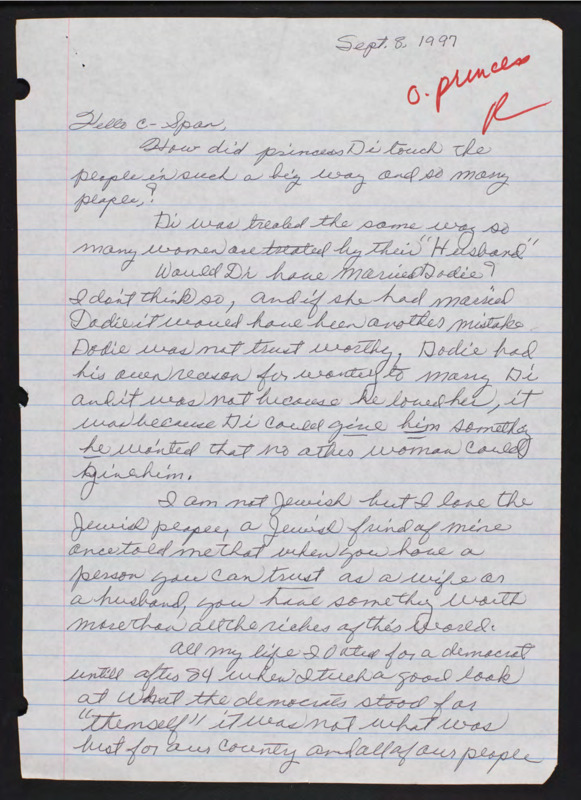 Sept. 8, 1997
O. princess
R
Hello C-Span,
How did princess Di touch the
people in such a big way and so many
peaper,?
Di was treated the same way so
many women are treated by their "Husband"
Would Di have Married Dodie?
I don't think so, and if she had married
Dodie it would have been another mistake.
Dodie was not trust worthy, Dodie had
his own reason for wanting to marry Di
and it was not because he loved her, it
was because Di could give him something
he wanted that no other woman could
give him.
I am not Jewish but I love the
Jewish peaper, a Jewish frind of mine
once told me that when you have a
person you can trust as a wife or
a husband, you have something worth
more than all the riches of this world.
All my life I voted for a democrat
untill after 84 when I tuck a good look
at What the democrats stood for
"themself" it was not what was
best for our county and all of our people